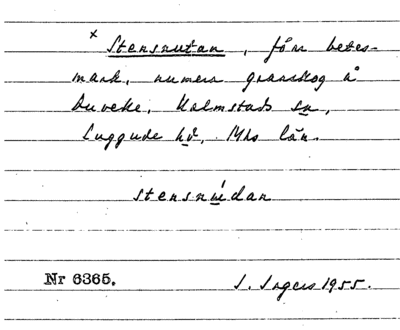 x Stensrutan, förr betes-
mark, numera granskog å
Duveke, Kalmstads sn,
Luggude hd, Mhs län.
stensrúdan
Nr 6365.
S. Ingers 1955.